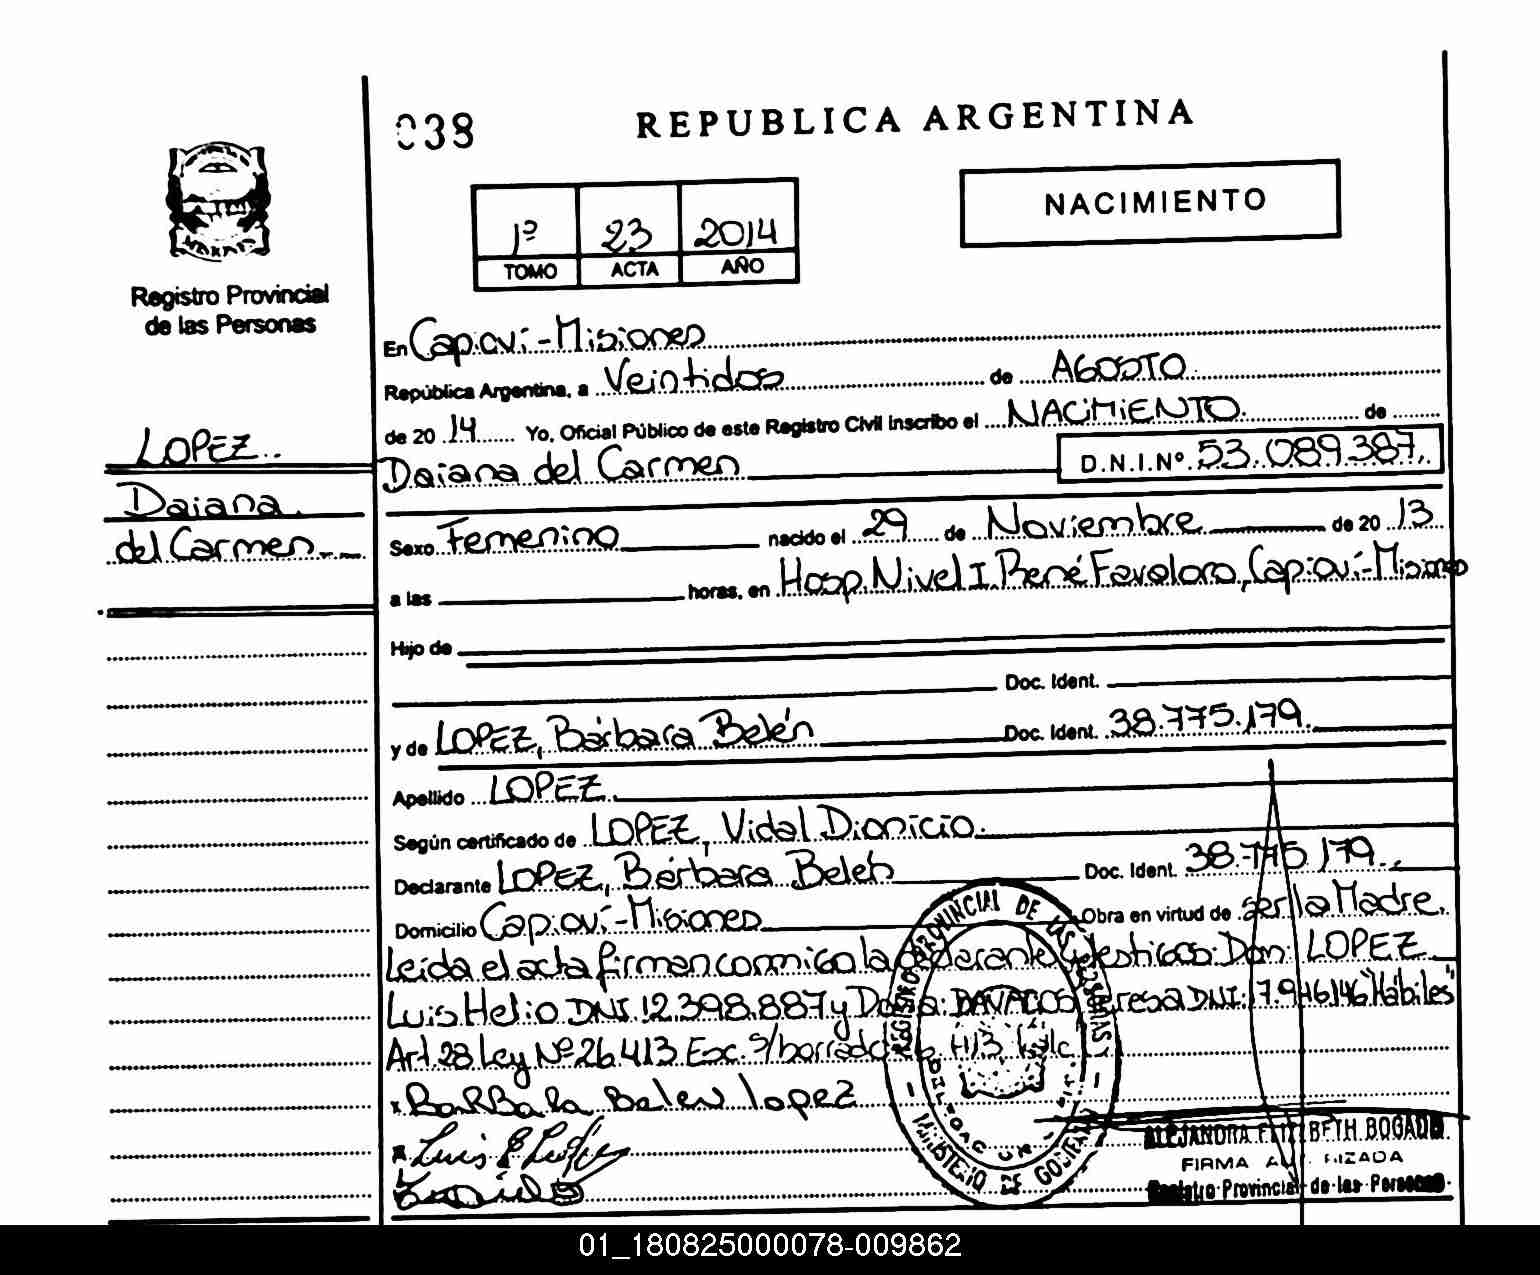 038
REPUBLICA ARGENTINA
NACIMIENTO
1º 23 2014
TOMO ACTA AÑO
Registro Provincial
de las Personas
LOPEZ
Daiana
del Carmen
En Capioví-Misiones
República Argentina, a Veintidos de AGOSTO
de 20 14 Yo, Oficial Público de este Registro Civil Inscribo el NACIMIENTO de
Daiana del Carmen D.N.I.Nº 53.089.387
Sexo Femenino nacido el 29 de Noviembre de 20 13
a las horas, en Hosp. Nivel I René Favaloro, Capioví-Misiones
Hijo de
Doc. Ident.
y de LOPEZ, Bárbara Belén Doc. Ident. 38.775.179
Apellido LOPEZ
Según certificado de LOPEZ, Vidal Dionicio.
Declarante LOPEZ, Bárbara Belén Doc. Ident. 38.775.179
Domicilio Capioví-Misiones Obra en virtud de ser la Madre.
Leída el acta firman conmigo la declarante y testigos: Don: LOPEZ
Luis Helio DNI 12.398.887 y Doña: Teresa DNI: 17.946.146 "Hábiles"
Art. 28 Ley Nº 26.413 Esc. s/borrado
x BarBara Belen lopez
x Luis
REGISTRO PROVINCIAL DE LAS PERSONAS
MINISTERIO DE GOBIERNO
ALEJANDRA ELIZABETH BOGADO
FIRMA AUTORIZADA
Registro Provincial de las Personas
01_180825000078-009862